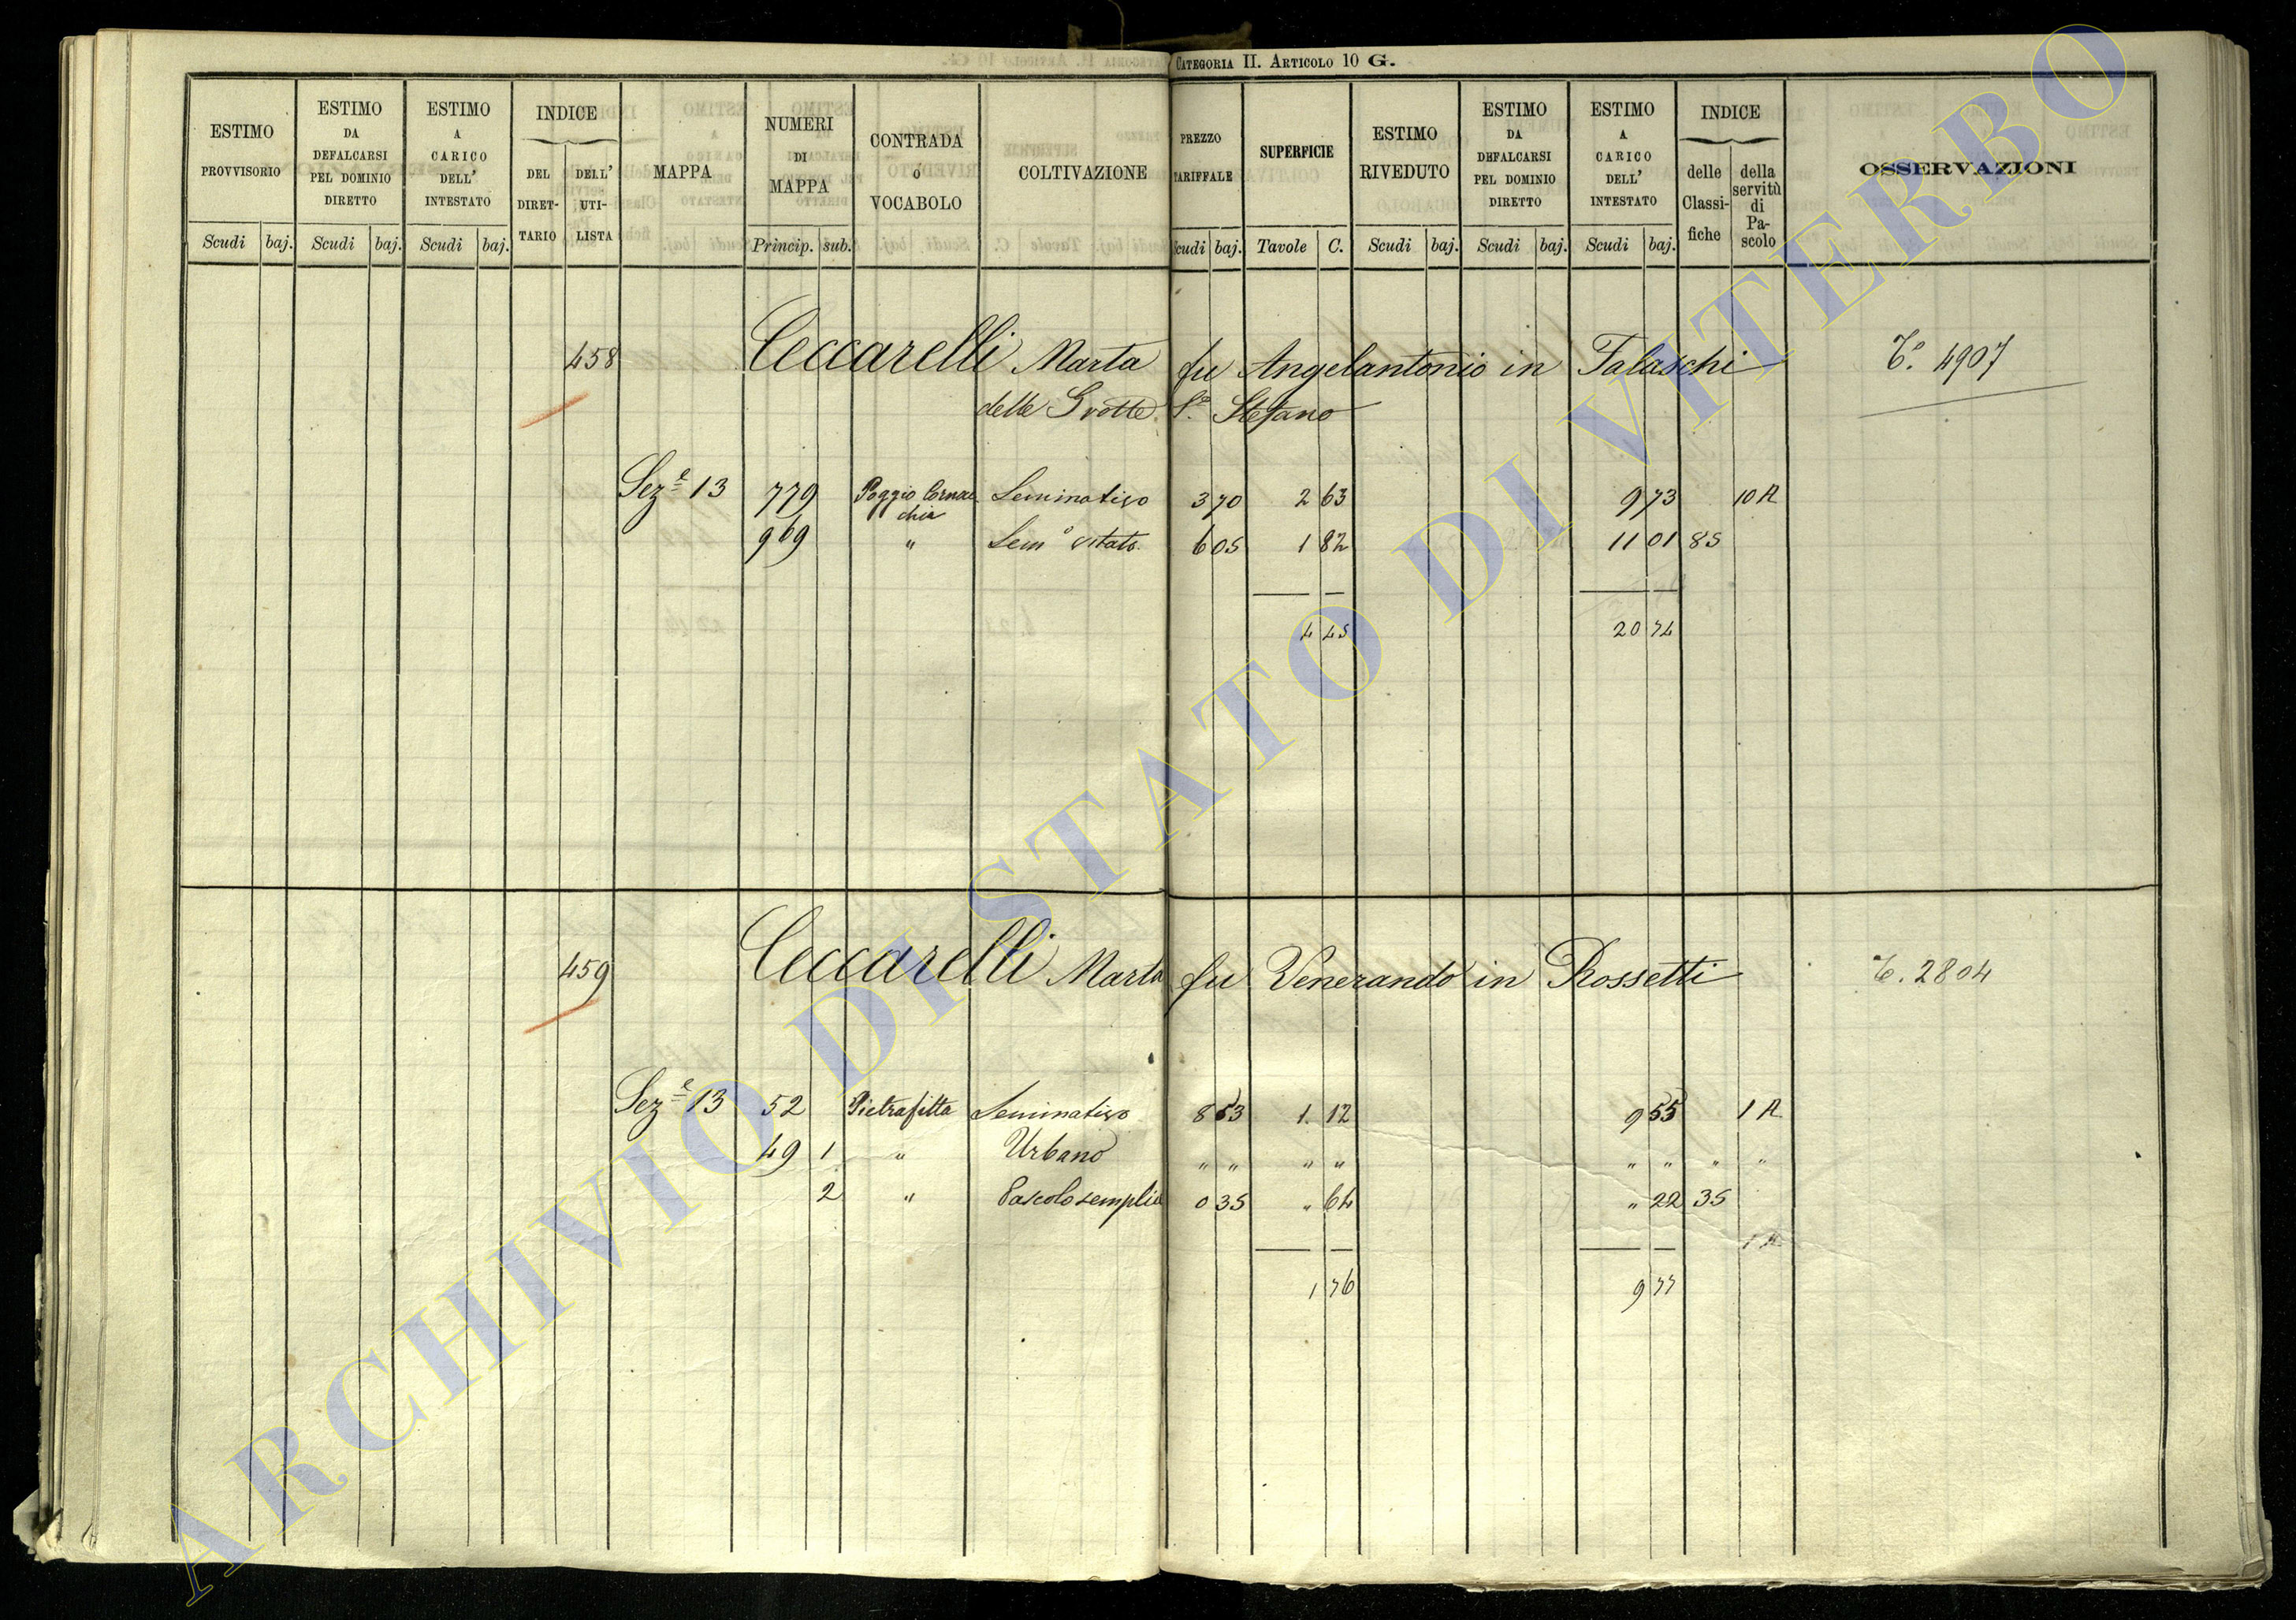 CATEGORIA II. ARTICOLO 10 G.
ESTIMO PROVVISORIO Scudi baj.
ESTIMO DA DEFALCARSI PEL DOMINIO DIRETTO Scudi baj.
ESTIMO A CARICO DELL' INTESTATO Scudi baj.
INDICE DEL DIRET-TARIO DELL' UTI-LISTA
MAPPA
NUMERI DI MAPPA Princip. sub.
CONTRADA o VOCABOLO
COLTIVAZIONE
PREZZO TARIFFALE Scudi baj.
SUPERFICIE Tavole C.
ESTIMO RIVEDUTO Scudi baj.
ESTIMO DA DEFALCARSI PEL DOMINIO DIRETTO Scudi baj.
ESTIMO A CARICO DELL' INTESTATO Scudi baj.
INDICE delle Classi-fiche della servitù di Pa-scolo
OSSERVAZIONI
458 Ceccarelli Marta fu Angelantonio in Talaschi T.° 4907
delle Grotte S.to Stefano
Sez.e 13 779 Poggio Cornac Seminativo 3 70 2 63 9 73 10 A
chia
969 " Sem.° vitato 6 05 1 82 11 01 85
4 45 20 74
459 Ceccarelli Marta fu Venerando in Rossetti T. 2804
Sez.e 13 52 Pietrafitta Seminativo 8 53 1. 12 9 55 1 A
49 1 " Urbano " " " " " " " "
2 " Pascolo semplice 0 35 " 64 " 22 35
1 A
1 76 9 77
ARCHIVIO DI STATO DI VITERBO